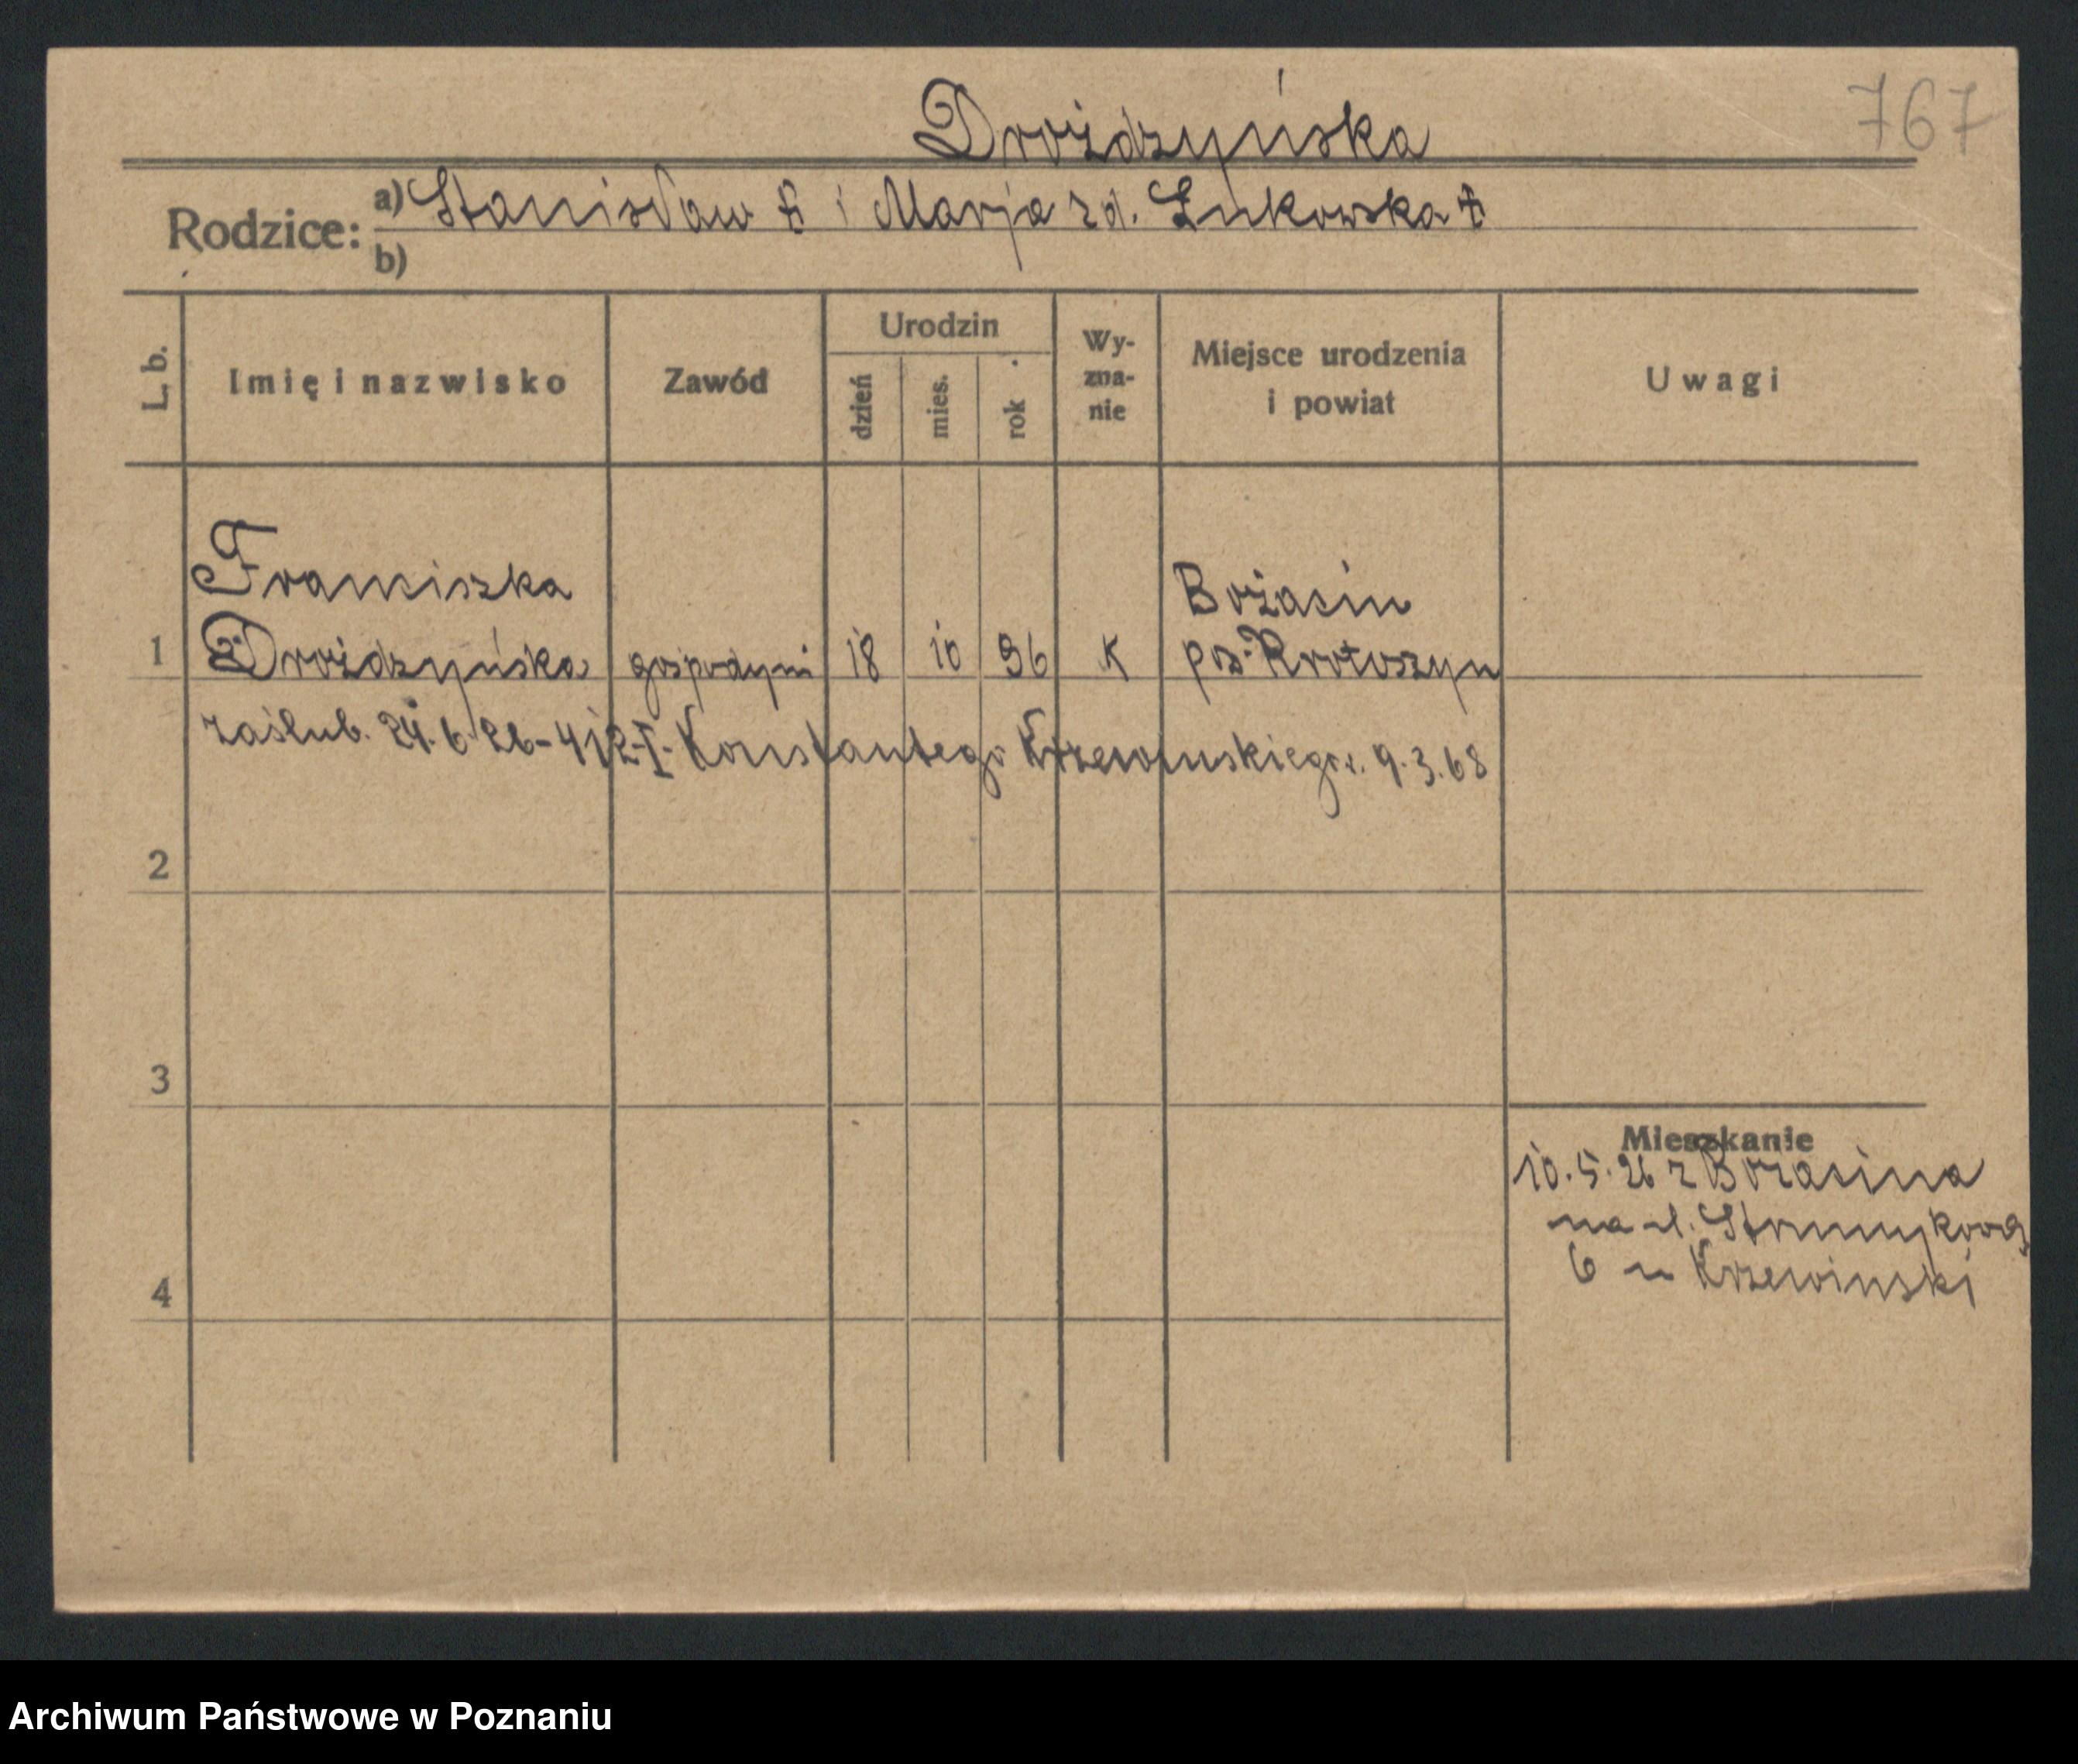 Drożdzyńska
767
Rodzice: a) Stanisław ✝ i Marja zd. Łukowska ✝
b)
L. b.
Imię i nazwisko
Zawód
Urodzin
dzień
mies.
rok
Wy-
zna-
nie
Miejsce urodzenia
i powiat
Uwagi
Franciszka
Bożacin
1 Drożdzyńska gospodyni 18 10 96 K pow. Krotoszyn
zaślub. 24.6.26 - 412-I. Konstantego Krzewinskiego u. 9.3.68
2
3
Mieszkanie
10.5.26 z Bożacina
na ul. Strumykową
4 6 u Krzewinski
Archiwum Państwowe w Poznaniu